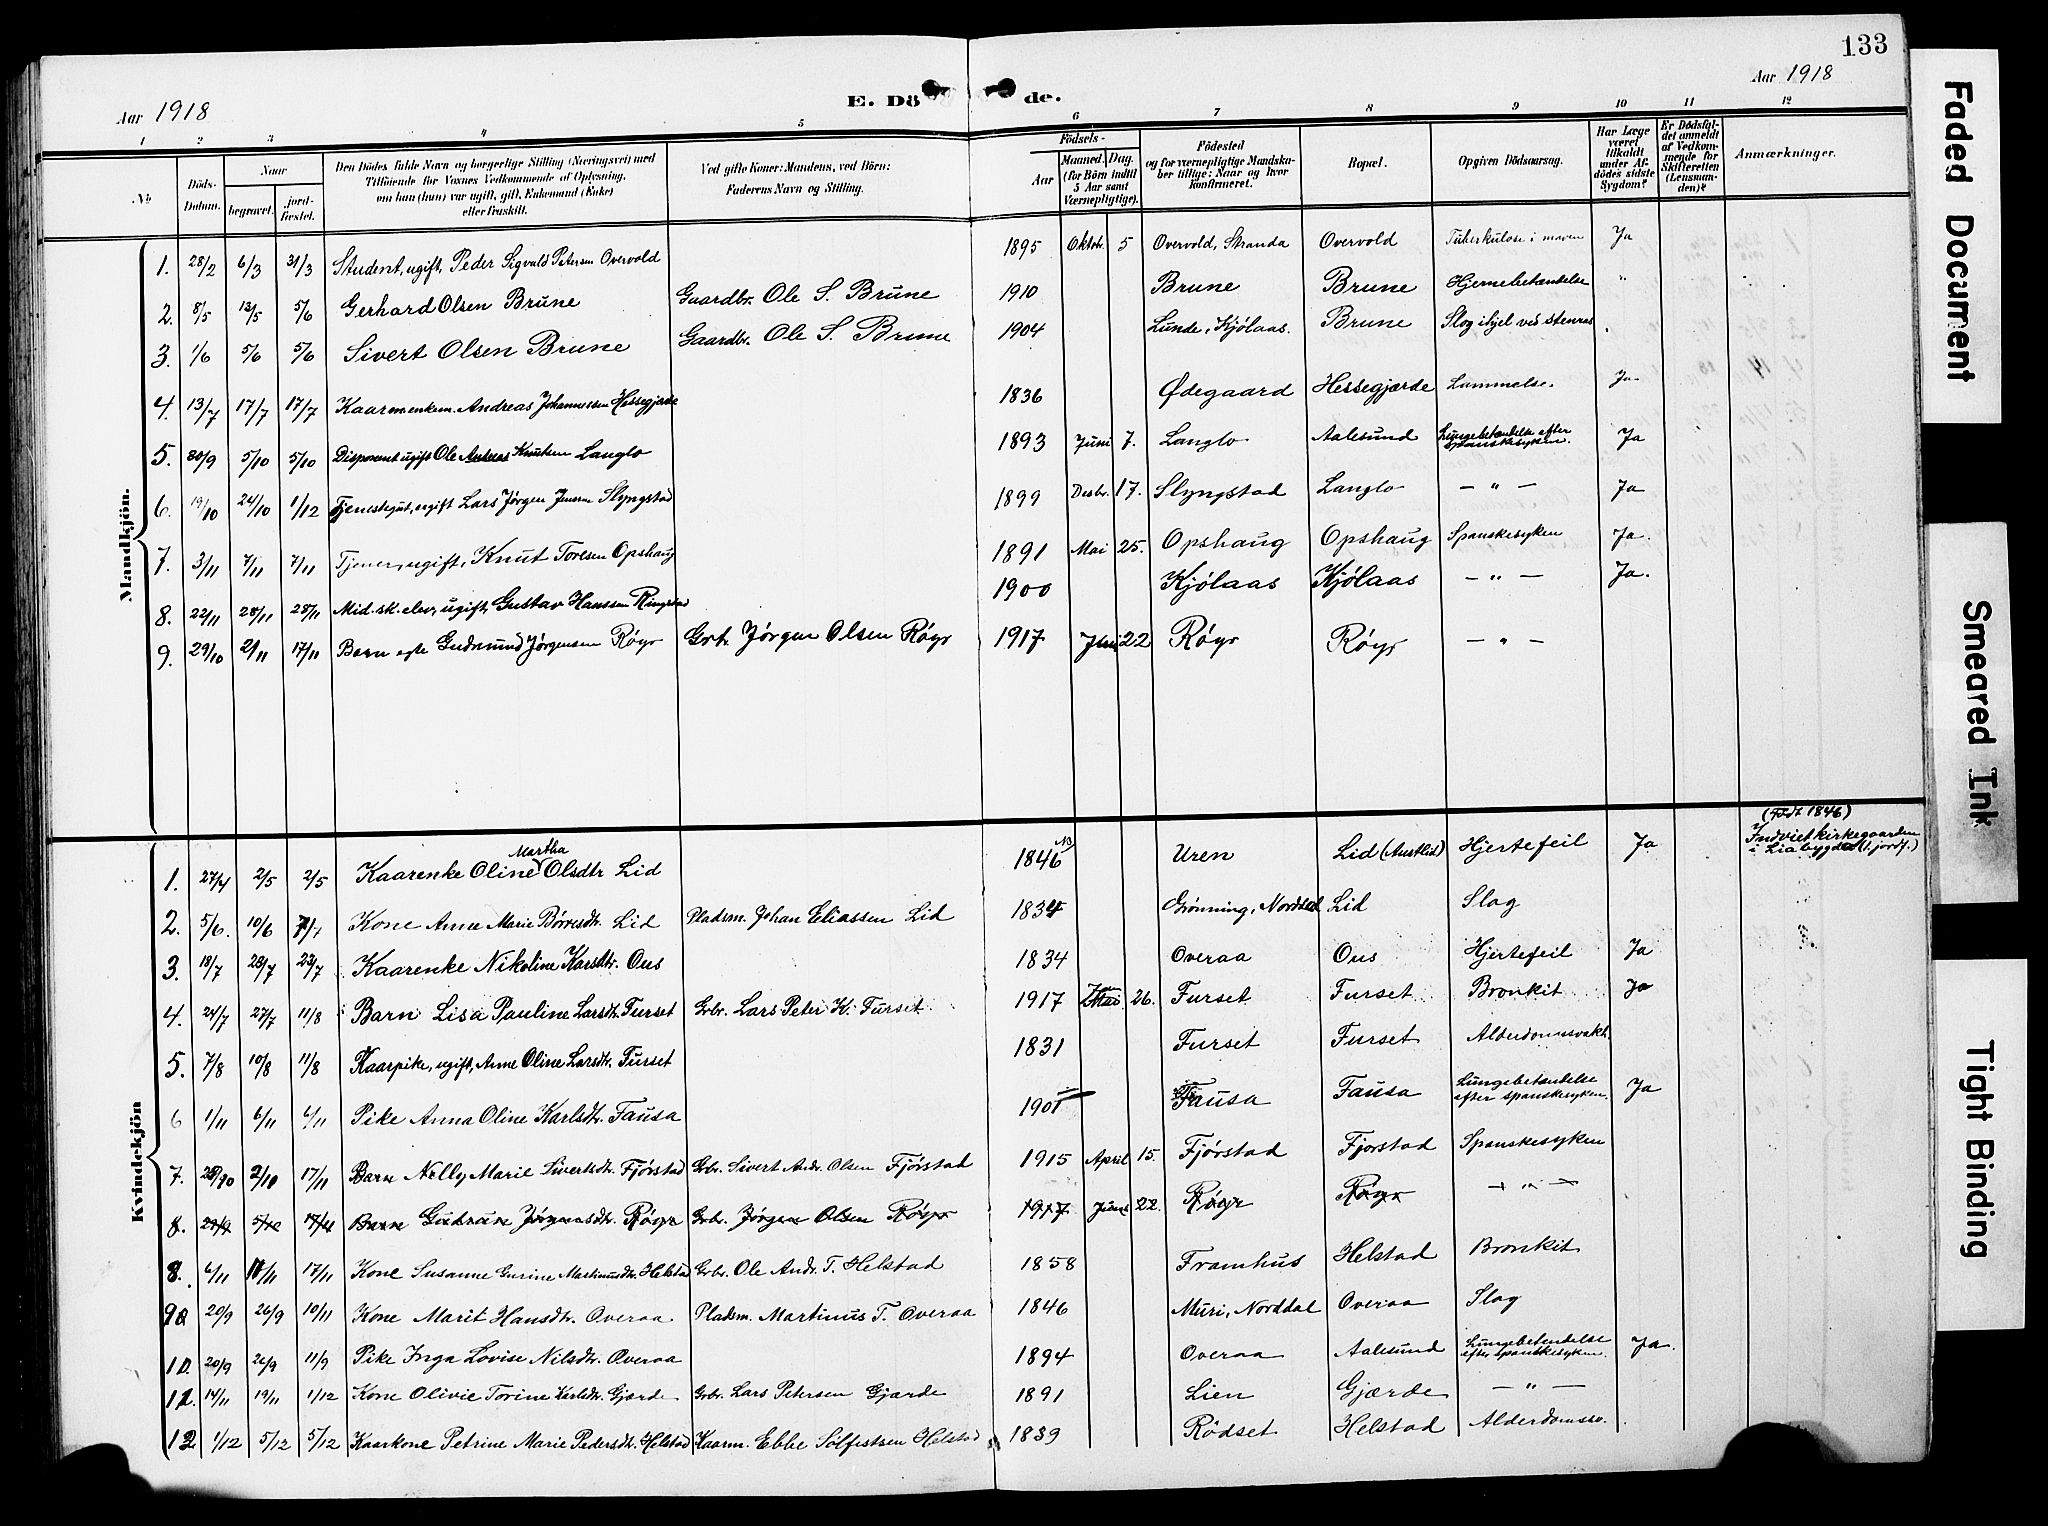 133
Aar 1918
E. Dö de.
Aar 1918
1 2 3 4 5 6 7 8 9 10 11 12
No
Döds-Datum.
Naar
begravet.
jord-fæstet.
Den Dödes fulde Navn og borgerlige Stilling (Næringsvei) med Tilföiende for Voxnes Vedkommende af Oplysning, om han (hun) var ugift, gift, Enkemand (Enke) eller fraskilt.
Ved gifte Koner: Mandens, ved Börn: Faderens Navn og Stilling.
Födsels-
Aar
Maaned. Dag.
(for Börn indtil 5 Aar samt Værnepligtige).
Födested og for værnepligtige Mandskaber tillige: Naar og hvor konfirmeret.
Bopæl.
Opgiven Dödsaarsag.
Har Læge været tilkaldt under Afdödes sidste Sygdom?
Er Dödsfaldet anmeldt af Vedkommende for Skifteretten (Lensmanden)?
Anmærkninger.
Mandkjön.
1. 28/2 6/3 31/3 Student, ugift, Peder Sigvald Petersen Overvold 1895 Oktbr. 5 Overvold, Stranda Overvold Tuberkulose i maven Ja
2. 8/5 13/5 5/6 Gerhard Olsen Brune Gaardbr. Ole S. Brune 1910 Brune Brune Hjernebetændelse "
3. 1/6 5/6 5/6 Sivert Olsen Brune Gaardbr. Ole S. Brune 1904 Lunde, Kjölaas. Brune Slog ihjel ved stenras "
4. 13/7 17/7 17/7 Kaarmenkem. Andreas Johannessen Hessegjerde 1836 Ødegaard Hessegjærde Lammelse. Ja
5. 30/9 5/10 5/10 Disponent ugift Ole Andreas Knutsen Langlo 1893 Juni 7. Langlo Aalesund Lungebetændelse efter spanskesyken. Ja
6. 19/10 24/10 1/12 Tjenestegut, ugift Lars Jørgen Jensen Slyngstad 1899 Desbr. 17. Slyngstad Langlo — " — Ja
7. 3/11 7/11 7/11 Tjener, ugift, Knut Toresen Opshaug 1891 Mai 25. Opshaug Opshaug Spanskesyken Ja.
8. 22/11 28/11 28/11 Mid.sk.elev, ugift, Gustav Hanssen Ringstad 1900 Kjölaas Kjölaas — " — Ja.
9. 29/10 2/11 17/11 Barn egte Gudmund Jørgensen Røyr Grbr. Jørgen Olsen Røyr 1917 Juni 22 Røyr Røyr — " —
Kvindekjön
(Født 1846)
1. 27/4 2/5 2/5 Kaarenke Oline Martha Olsdtr Lid 1846 NB Uren Lid (Austlid) Hjertefeil Ja Indviet kirkegaarden i Liabygden (1. jordf.)
2. 5/6. 10/6 7/7 Kone Anne Marie Børresdtr. Lid Pladsm. Johan Eliassen Lid 1834 Grønning, Norddal Lid Slag
3. 18/7 23/7 23/7 Kaarenke Nikoline Karsdtr. Ous 1834 Overaa Ous Hjertefeil Ja
4. 24/7 27/7 11/8 Barn Lisa Pauline Larsdtr. Furset Grbr. Lars Peter K. Furset 1917 Mai 26. Furset Furset Bronkit Ja
5. 7/8 10/8 11/8 Kaarpike, ugift, Anne Oline Larsdtr. Furset 1831 Furset Furset Alderdomssvakh.
6 1/11 6/11 6/11 Pike Anna Oline Karlsdtr. Fausa 1901 Fausa Fausa Lungebetændelse efter spanskesyken. Ja
7. 28/10 2/10 17/11 Barn Nelly Marie Sivertsdtr. Fjørstad Grbr. Sivert Andr. Olsen Fjørstad 1915 April 15. Fjørstad Fjørstad Spanskesyken
8. Barn Gudrun Jørgensdtr. Røyr Grbr. Jørgen Olsen Røyr 1917 Juni 22. Røyr Røyr — " —
8. 6/11 11/11 17/11 Kone Susanne Gurine Martinusdtr. Helstad Grbr. Ole Andr. T. Helstad 1858 Framhus Helstad Bronkit
9. 20/9 26/9 10/11 Kone Marit Hansdtr. Overaa Pladsm. Martinus T. Overaa 1846 Muri, Norddal Overaa Slag
10. 20/9 26/9 11/9 Pike Inga Lovise Nilsdtr. Overaa 1894 Overaa Aalesund Lungebetendelse efter spanskesyken. Ja.
11. 14/11 19/11 1/12 Kone Olivie Torine Karlsdtr. Gjærde Grbr. Lars Petersen Gjærde 1891 Lien Gjærde — " —
12 1/12 5/12 5/12 Kaarkone Petrine Marie Pedersdtr. Helstad Kaarm. Ebbe Sølfestsen Helstad 1839 Rödset Helstad Alderdomssv.
Faded Document
Smeared Ink
Tight Binding